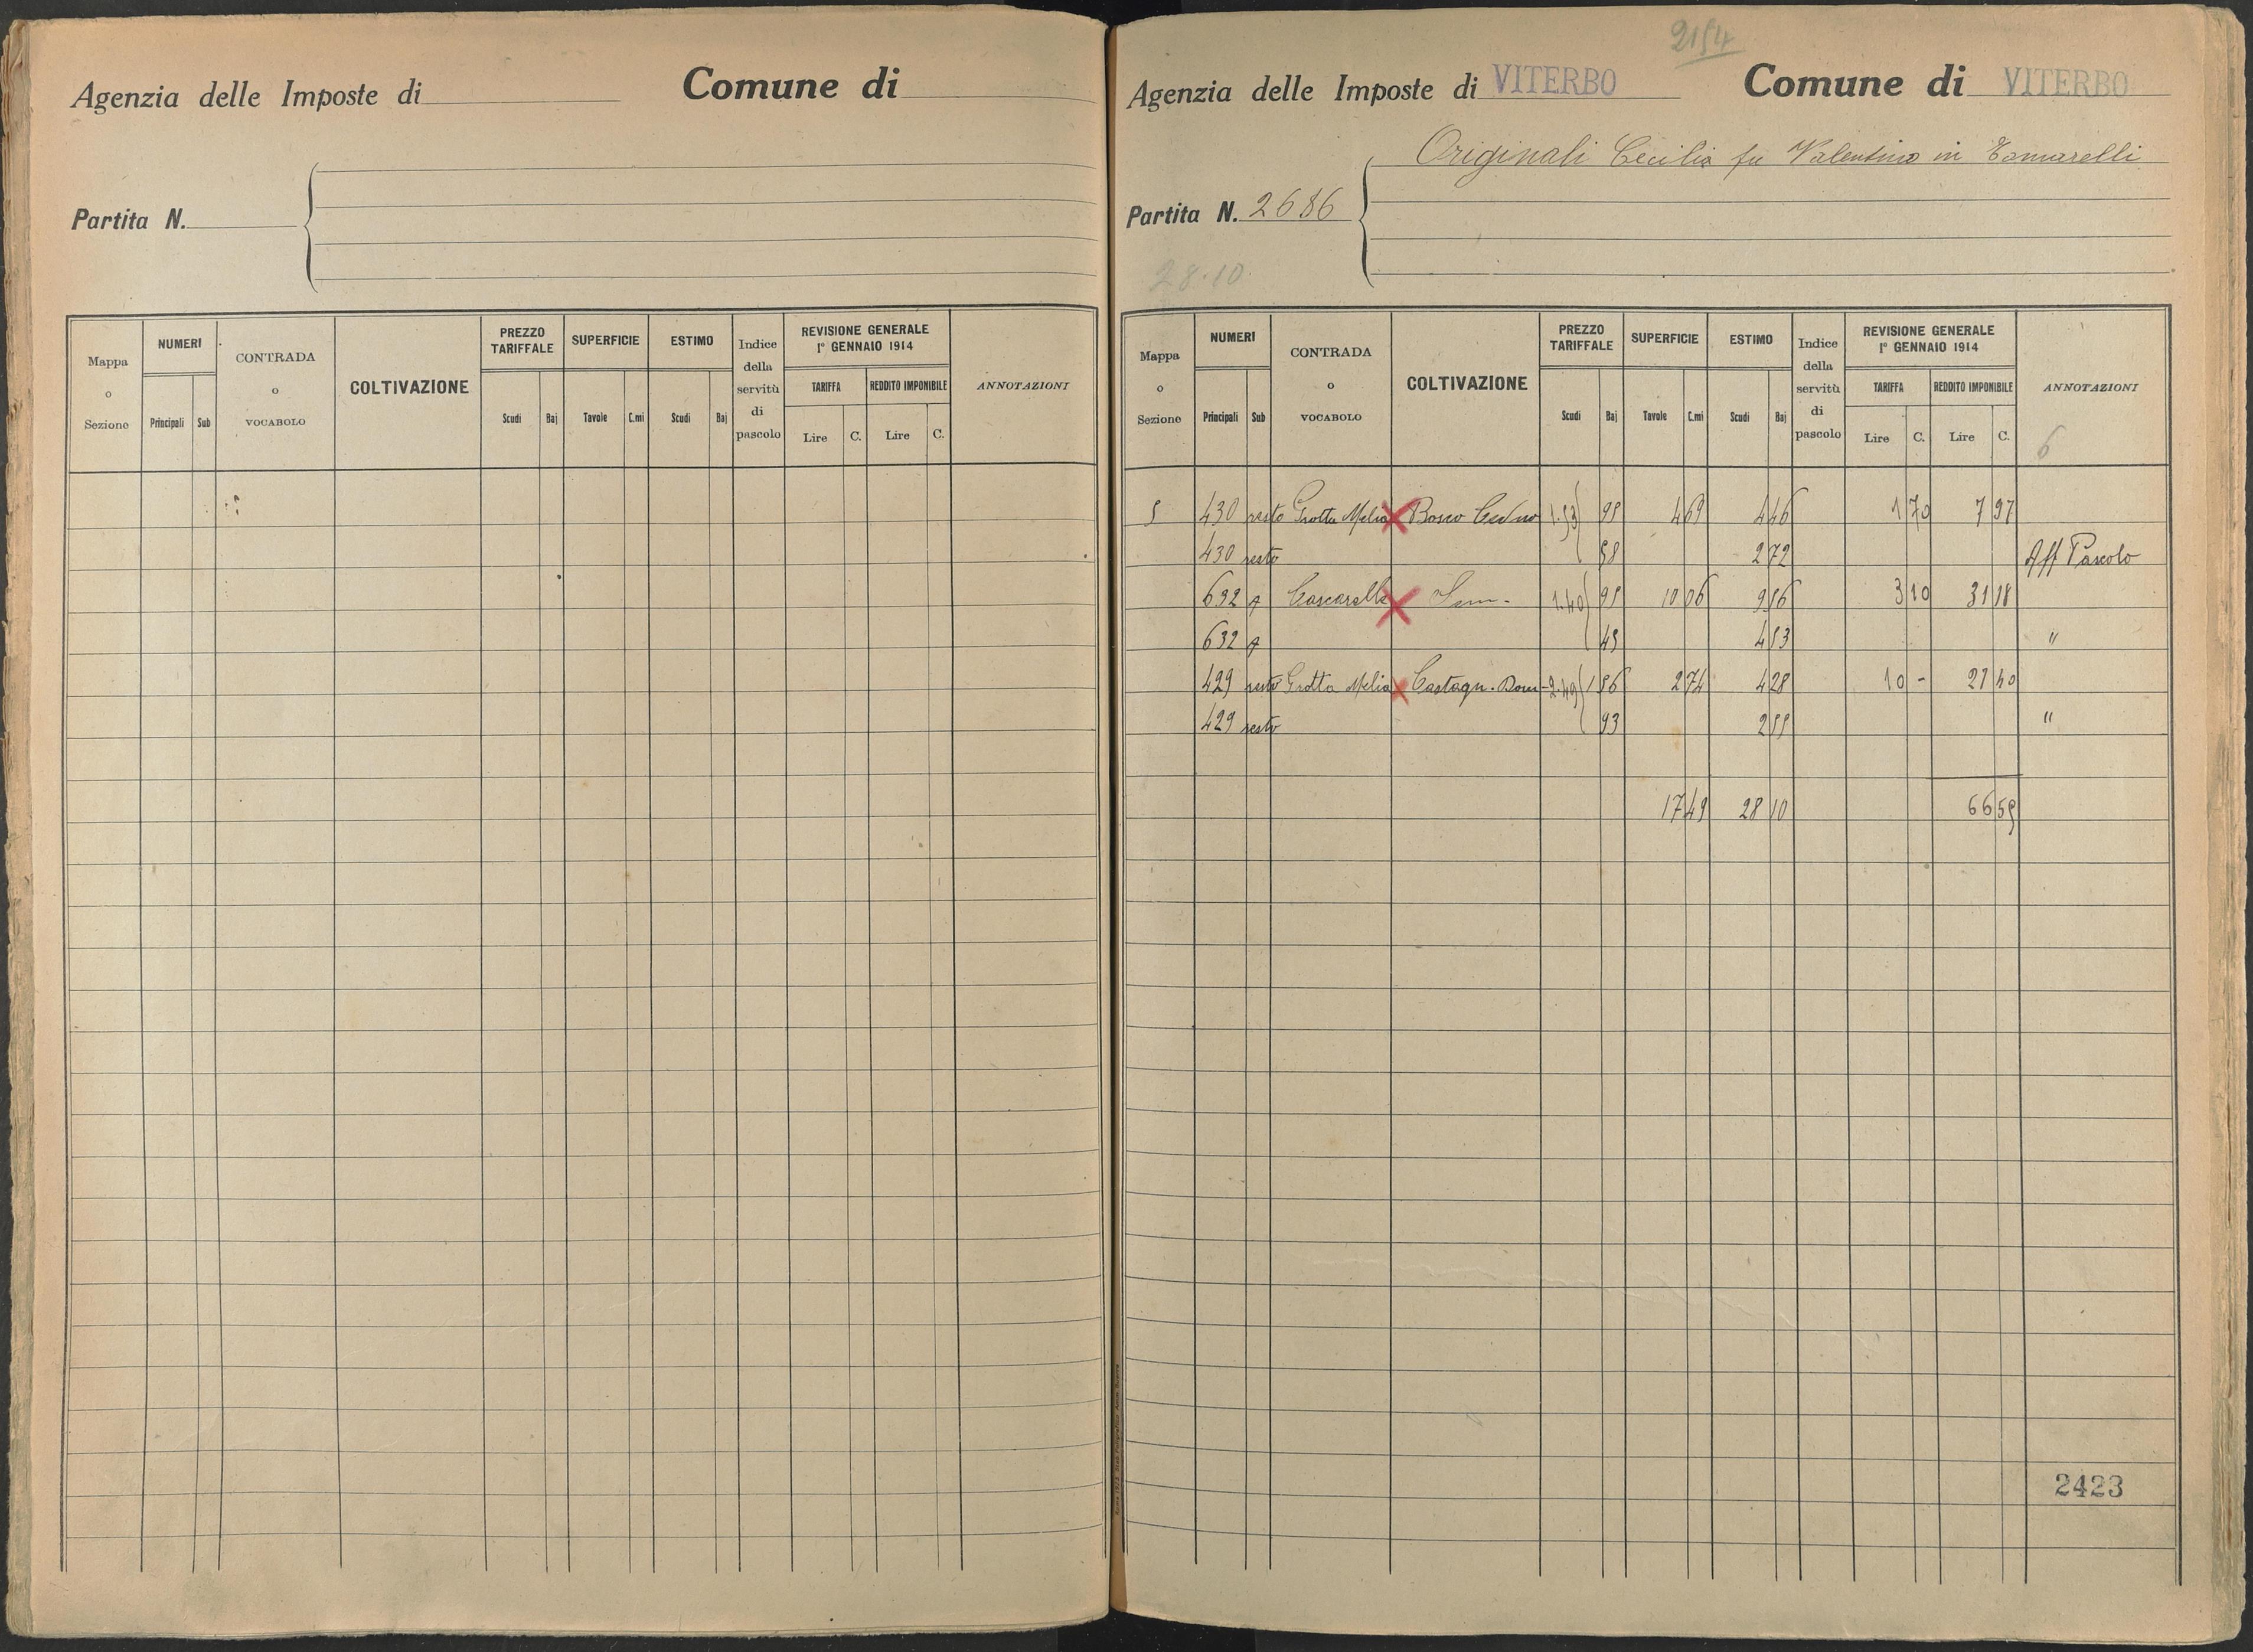 Agenzia delle Imposte di Comune di
Partita N.
Mappa o Sezione NUMERI Principali Sub CONTRADA o VOCABOLO COLTIVAZIONE PREZZO TARIFFALE Scudi Baj SUPERFICIE Tavole C.mi ESTIMO Scudi Baj Indice della servitù di pascolo REVISIONE GENERALE 1° GENNAIO 1914 TARIFFA Lire C. REDDITO IMPONIBILE Lire C. ANNOTAZIONI
2154
Agenzia delle Imposte di VITERBO Comune di VITERBO
Originali Cecilia fu Valentino in Tomarelli
Partita N. 2686
28.10
Mappa o Sezione NUMERI Principali Sub CONTRADA o VOCABOLO COLTIVAZIONE PREZZO TARIFFALE Scudi Baj SUPERFICIE Tavole C.mi ESTIMO Scudi Baj Indice della servitù di pascolo REVISIONE GENERALE 1° GENNAIO 1914 TARIFFA Lire C. REDDITO IMPONIBILE Lire C. ANNOTAZIONI
6
5 430 resto Grotta Melia Bosco Ceduo 1.53 95 4 69 4 46 1 70 7 97
430 resto 58 2 72 Aff Pascolo
692 A Cascarella Sem. 1.40 95 10 06 9 56 3 10 31 18
632 A 45 4 53 "
429 resto Grotta Melia Castagn. Dom 2.49 1 56 2 74 4 28 10 - 27 40
429 resto 93 2 55 "
17 49 28 10 66 55
2423